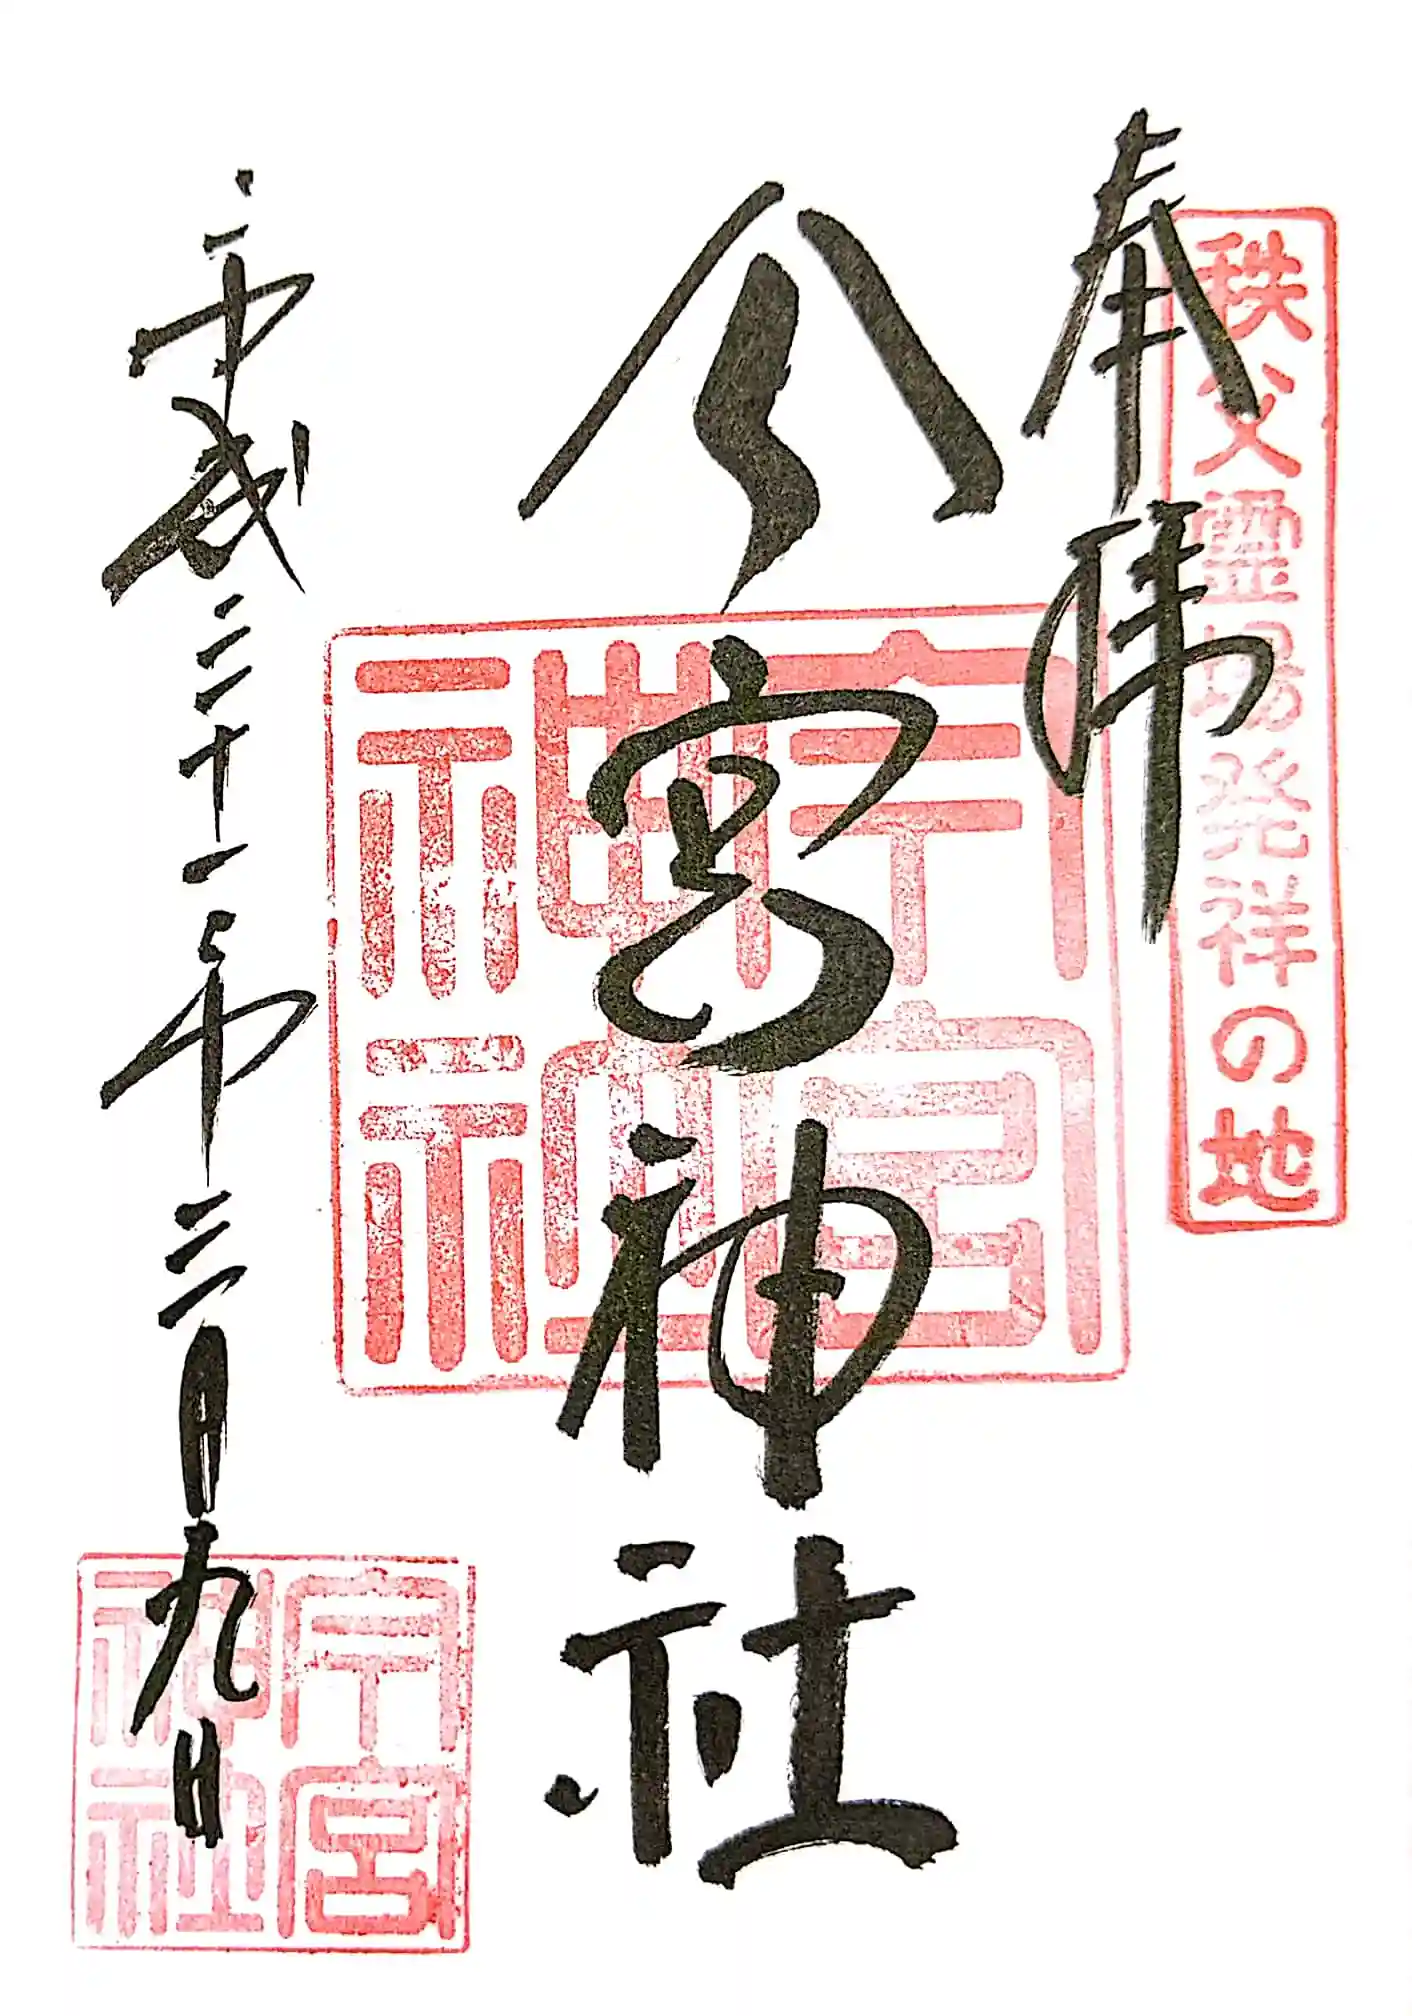 秩父霊場発祥の地
奉拝
今宮神社
今宮神社
平成三十一年三月九日
今宮神社